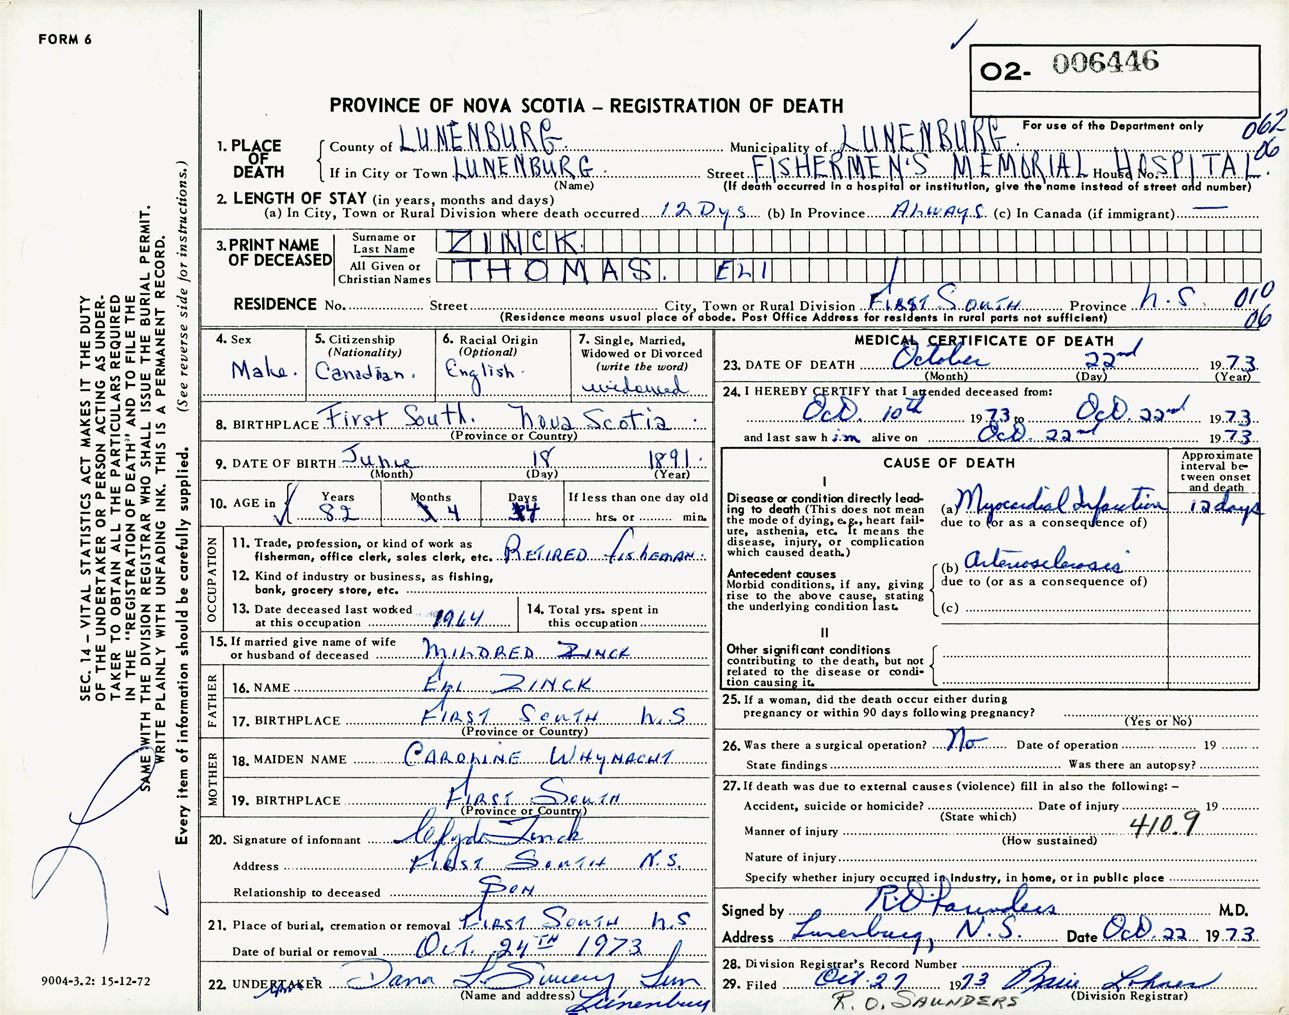 FORM 6
O2- 006446
PROVINCE OF NOVA SCOTIA – REGISTRATION OF DEATH
For use of the Department only
062
06
1. PLACE OF DEATH
County of LUNENBURG Municipality of LUNENBURG
If in City or Town LUNENBURG Street FISHERMEN'S MEMORIAL HOSPITAL. House No.
(Name) (If death occurred in a hospital or institution, give the name instead of street and number)
2. LENGTH OF STAY (in years, months and days)
(a) In City, Town or Rural Division where death occurred 12 Dys (b) In Province Always (c) In Canada (if immigrant) —
3. PRINT NAME OF DECEASED
Surname or Last Name ZINCK
All Given or Christian Names THOMAS. ELI
RESIDENCE No. Street City, Town or Rural Division First South Province N.S. 010
(Residence means usual place of abode. Post Office Address for residents in rural parts not sufficient) 06
4. Sex Male.
5. Citizenship (Nationality) Canadian.
6. Racial Origin (Optional) English.
7. Single, Married, Widowed or Divorced (write the word) widowed
8. BIRTHPLACE First South. Nova Scotia
(Province or Country)
9. DATE OF BIRTH June 18 1891.
(Month) (Day) (Year)
10. AGE in Years 82 Months 4 Days 4 If less than one day old
hrs. or min.
OCCUPATION
11. Trade, profession, or kind of work as
fisherman, office clerk, sales clerk, etc. RETIRED fisheman.
12. Kind of industry or business, as fishing,
bank, grocery store, etc.
13. Date deceased last worked
at this occupation 1964
14. Total yrs. spent in
this occupation
15. If married give name of wife
or husband of deceased MILDRED ZINCK
FATHER
16. NAME ELI ZINCK
17. BIRTHPLACE FIRST SOUTH N.S
(Province or Country)
MOTHER
18. MAIDEN NAME CAROLINE WHYNACHT
19. BIRTHPLACE FIRST SOUTH
(Province or Country)
20. Signature of informant Clyde Zinck
Address FIRST SOUTH N.S.
Relationship to deceased SON
21. Place of burial, cremation or removal FIRST SOUTH N.S
Date of burial or removal OCT. 24TH 1973
22. UNDERTAKER Dana L. Sweeny
(Name and address) Lunenburg
MEDICAL CERTIFICATE OF DEATH
23. DATE OF DEATH October 22nd 1973
(Month) (Day) (Year)
24. I HEREBY CERTIFY that I attended deceased from:
Oct. 10th 1973 to Oct. 22nd 1973
and last saw him alive on Oct. 22nd 1973
CAUSE OF DEATH
Approximate interval between onset and death
I
Disease or condition directly leading to death (This does not mean
the mode of dying, e.g., heart failure, asthenia, etc. It means the
disease, injury, or complication
which caused death.)
(a) Myocardial Infarction 12 days
due to (or as a consequence of)
Antecedent causes
Morbid conditions, if any, giving
rise to the above cause, stating
the underlying condition last.
(b) Arteriosclerosis
due to (or as a consequence of)
(c)
II
Other significant conditions
contributing to the death, but not
related to the disease or condition causing it.
25. If a woman, did the death occur either during
pregnancy or within 90 days following pregnancy?
(Yes or No)
26. Was there a surgical operation? No Date of operation 19
State findings Was there an autopsy?
27. If death was due to external causes (violence) fill in also the following: –
Accident, suicide or homicide? Date of injury 19
(State which)
Manner of injury 410.9
(How sustained)
Nature of injury
Specify whether injury occurred in Industry, in home, or in public place
Signed by R.O. Saunders M.D.
Address Lunenburg, N.S. Date Oct. 22 1973
28. Division Registrar's Record Number
29. Filed Oct. 27 1973
(Division Registrar)
R. O. SAUNDERS
SEC. 14 – VITAL STATISTICS ACT MAKES IT THE DUTY
OF THE UNDERTAKER OR PERSON ACTING AS UNDER-
TAKER TO OBTAIN ALL THE PARTICULARS REQUIRED
IN THE "REGISTRATION OF DEATH" AND TO FILE THE
SAME WITH THE DIVISION REGISTRAR WHO SHALL ISSUE THE BURIAL PERMIT.
WRITE PLAINLY WITH UNFADING INK. THIS IS A PERMANENT RECORD.
Every item of information should be carefully supplied. (See reverse side for instructions.)
9004-3.2: 15-12-72